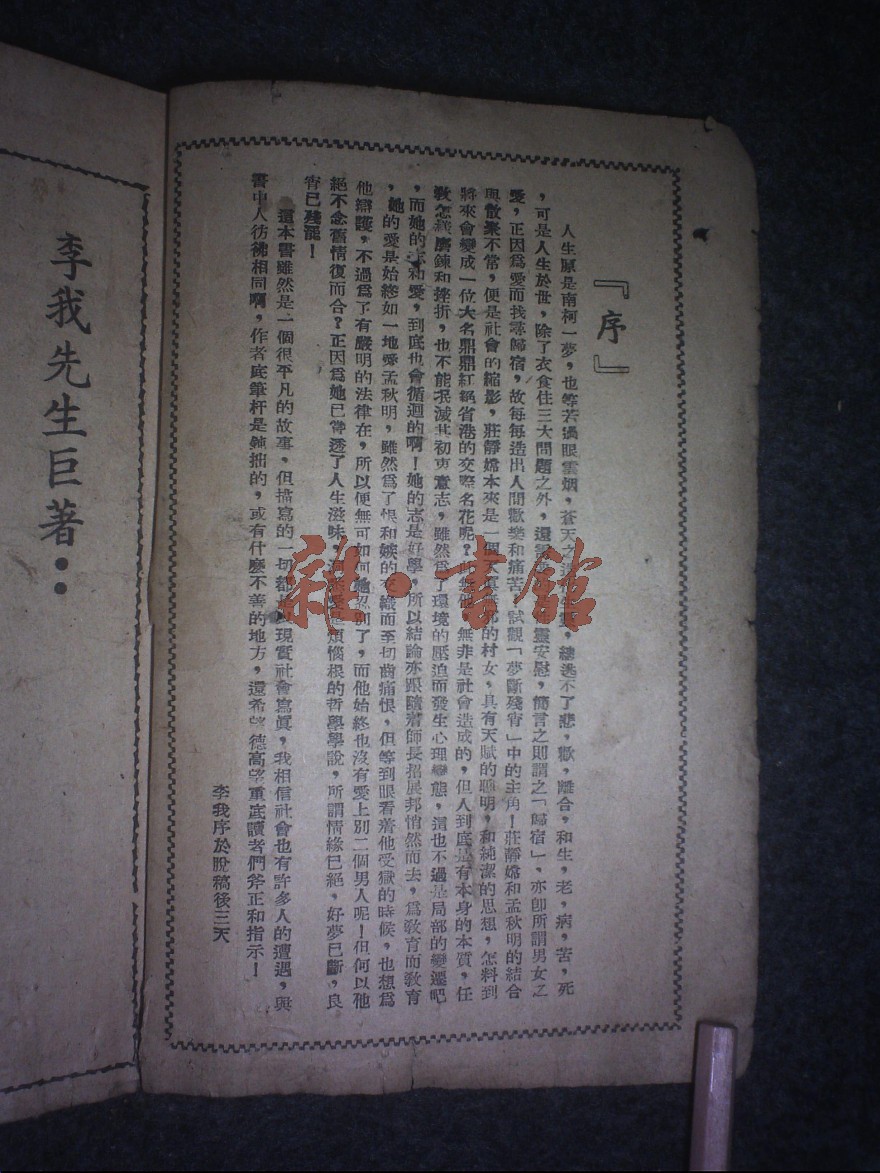 『序』
人生原是南柯一夢，也等若過眼雲烟，蒼天之，總逃不了悲，歡，離合，和生，老，病，苦，死
，可是人生於世，除了衣食住三大問題之外，還靈安慰，簡言之則謂之「歸宿」，亦卽所謂男女之
愛，正因爲愛而找尋歸宿，故每每造出人間歡樂和痛苦，試觀「夢斷殘宵」中的主角！莊靜嫦和孟秋明的結合
與散聚不常，便是社會的縮影，莊靜嫦本來是一個的村女，具有天賦的聰明，和純潔的思想，怎料到
將來會變成一位大名鼎鼎紅絕省港的交際名花呢？此無他，無非是社會造成的，但人到底是有本身的本質，任
敎怎樣磨鍊和挫折，也不能泯滅其初衷意志，雖然爲了環境的壓迫而發生心理變態，這也不過是局部的變遷吧
，而她的志和愛，到底也會循迴的啊！她的志是好學，所以結論亦跟隨着師長招展邦悄然而去，爲敎育而敎育
，她的愛是始終如一地愛孟秋明，雖然爲了恨和嫉的交織而至切齒痛恨，但等到眼看着他受獄的時候，也想爲
他辯護，不過爲了有嚴明的法律在，所以便無可如何地忍別了，而他始終也沒有愛上別二個男人呢！但何以他
絕不念舊情復而合？正因爲她已嘗透了人生滋味，煩惱根的哲學學說，所謂情緣已絕，好夢已斷，良
宵已殘罷！
這本書雖然是一個很平凡的故事，但描寫的一切都是現實社會寫眞，我相信社會也有許多人的遭遇，與
書中人彷彿相同啊，作者底筆杆是鈍拙的，或有什麼不善的地方，還希望德高望重底讀者們斧正和指示！
李我序於脫稿後三天
李我先生巨著：
雜·書館